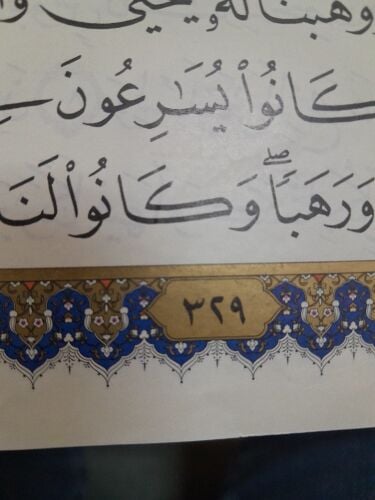 وَوَهَبْنَا لَهُۥ يَحْيَىٰ
كَانُوا۟ يُسَٰرِعُونَ
وَرَهَبًا ۖ وَكَانُوا۟ لَنَا
٣٢٩